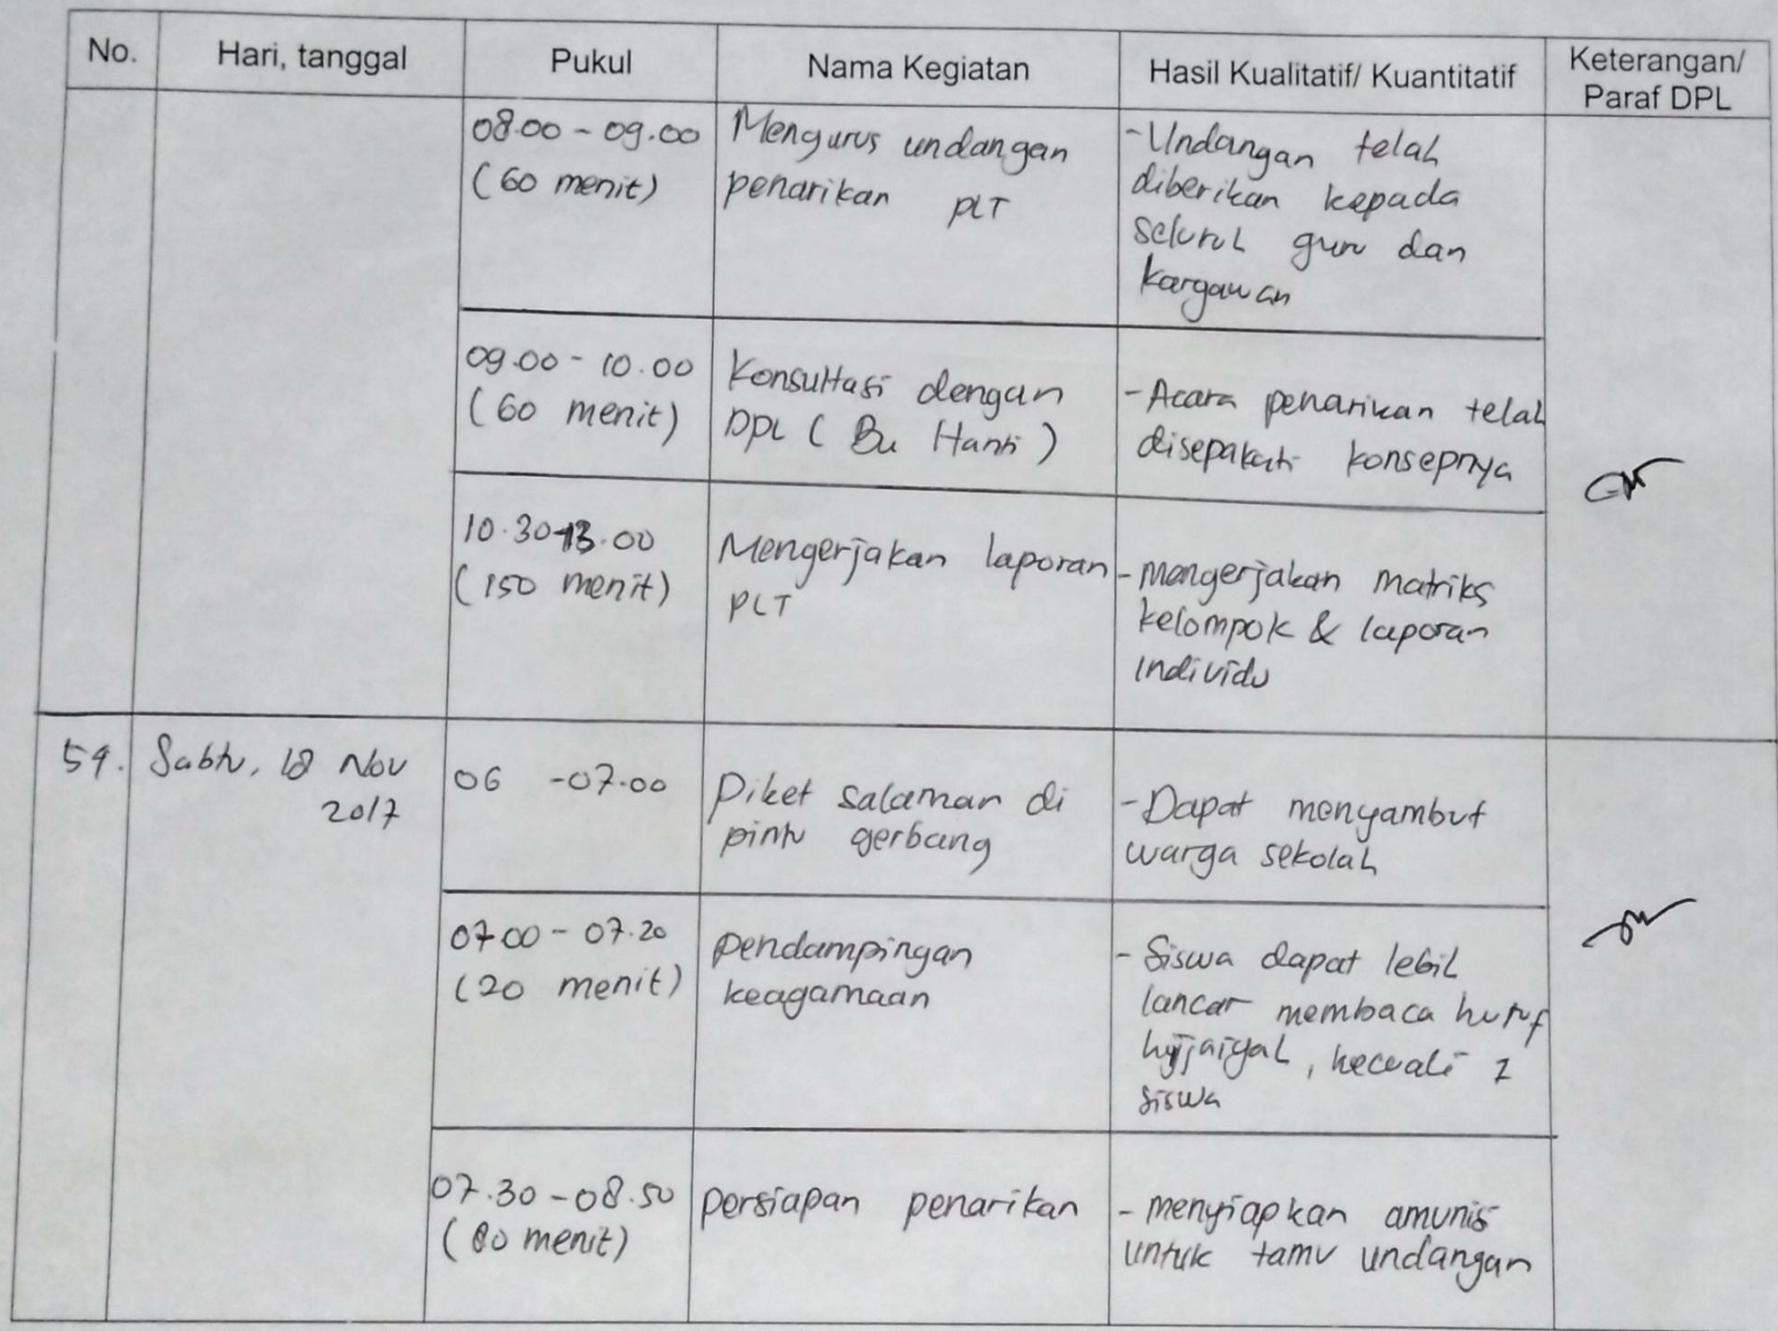 No. Hari, tanggal Pukul Nama Kegiatan Hasil Kualitatif/ Kuantitatif Keterangan/
Paraf DPL
08.00 - 09.00
(60 menit)
Mengurus undangan
penarikan PLT
- Undangan telah
diberikan kepada
seluruh guru dan
kargawan
09.00 - 10.00
(60 menit)
Konsultasi dengan
DPL ( Bu Hanti )
- Acara penarikan telah
disepakati konsepnya
10.30-13.00
(150 menit)
Mengerjakan laporan
PLT
- mengerjakan matriks
kelompok & laporan
individu
59. Sabtu, 18 Nov
2017
06 -07.00
Piket salaman di
pintu gerbang
- Dapat menyambut
warga sekolah
07.00 - 07.20
(20 menit)
pendampingan
keagamaan
- Siswa dapat lebih
lancar membaca huruf
hijjaiyah, kecuali 1
siswa
07.30 - 08.50
(80 menit)
persiapan penarikan
- menyiapkan amunisi
untuk tamu undangan